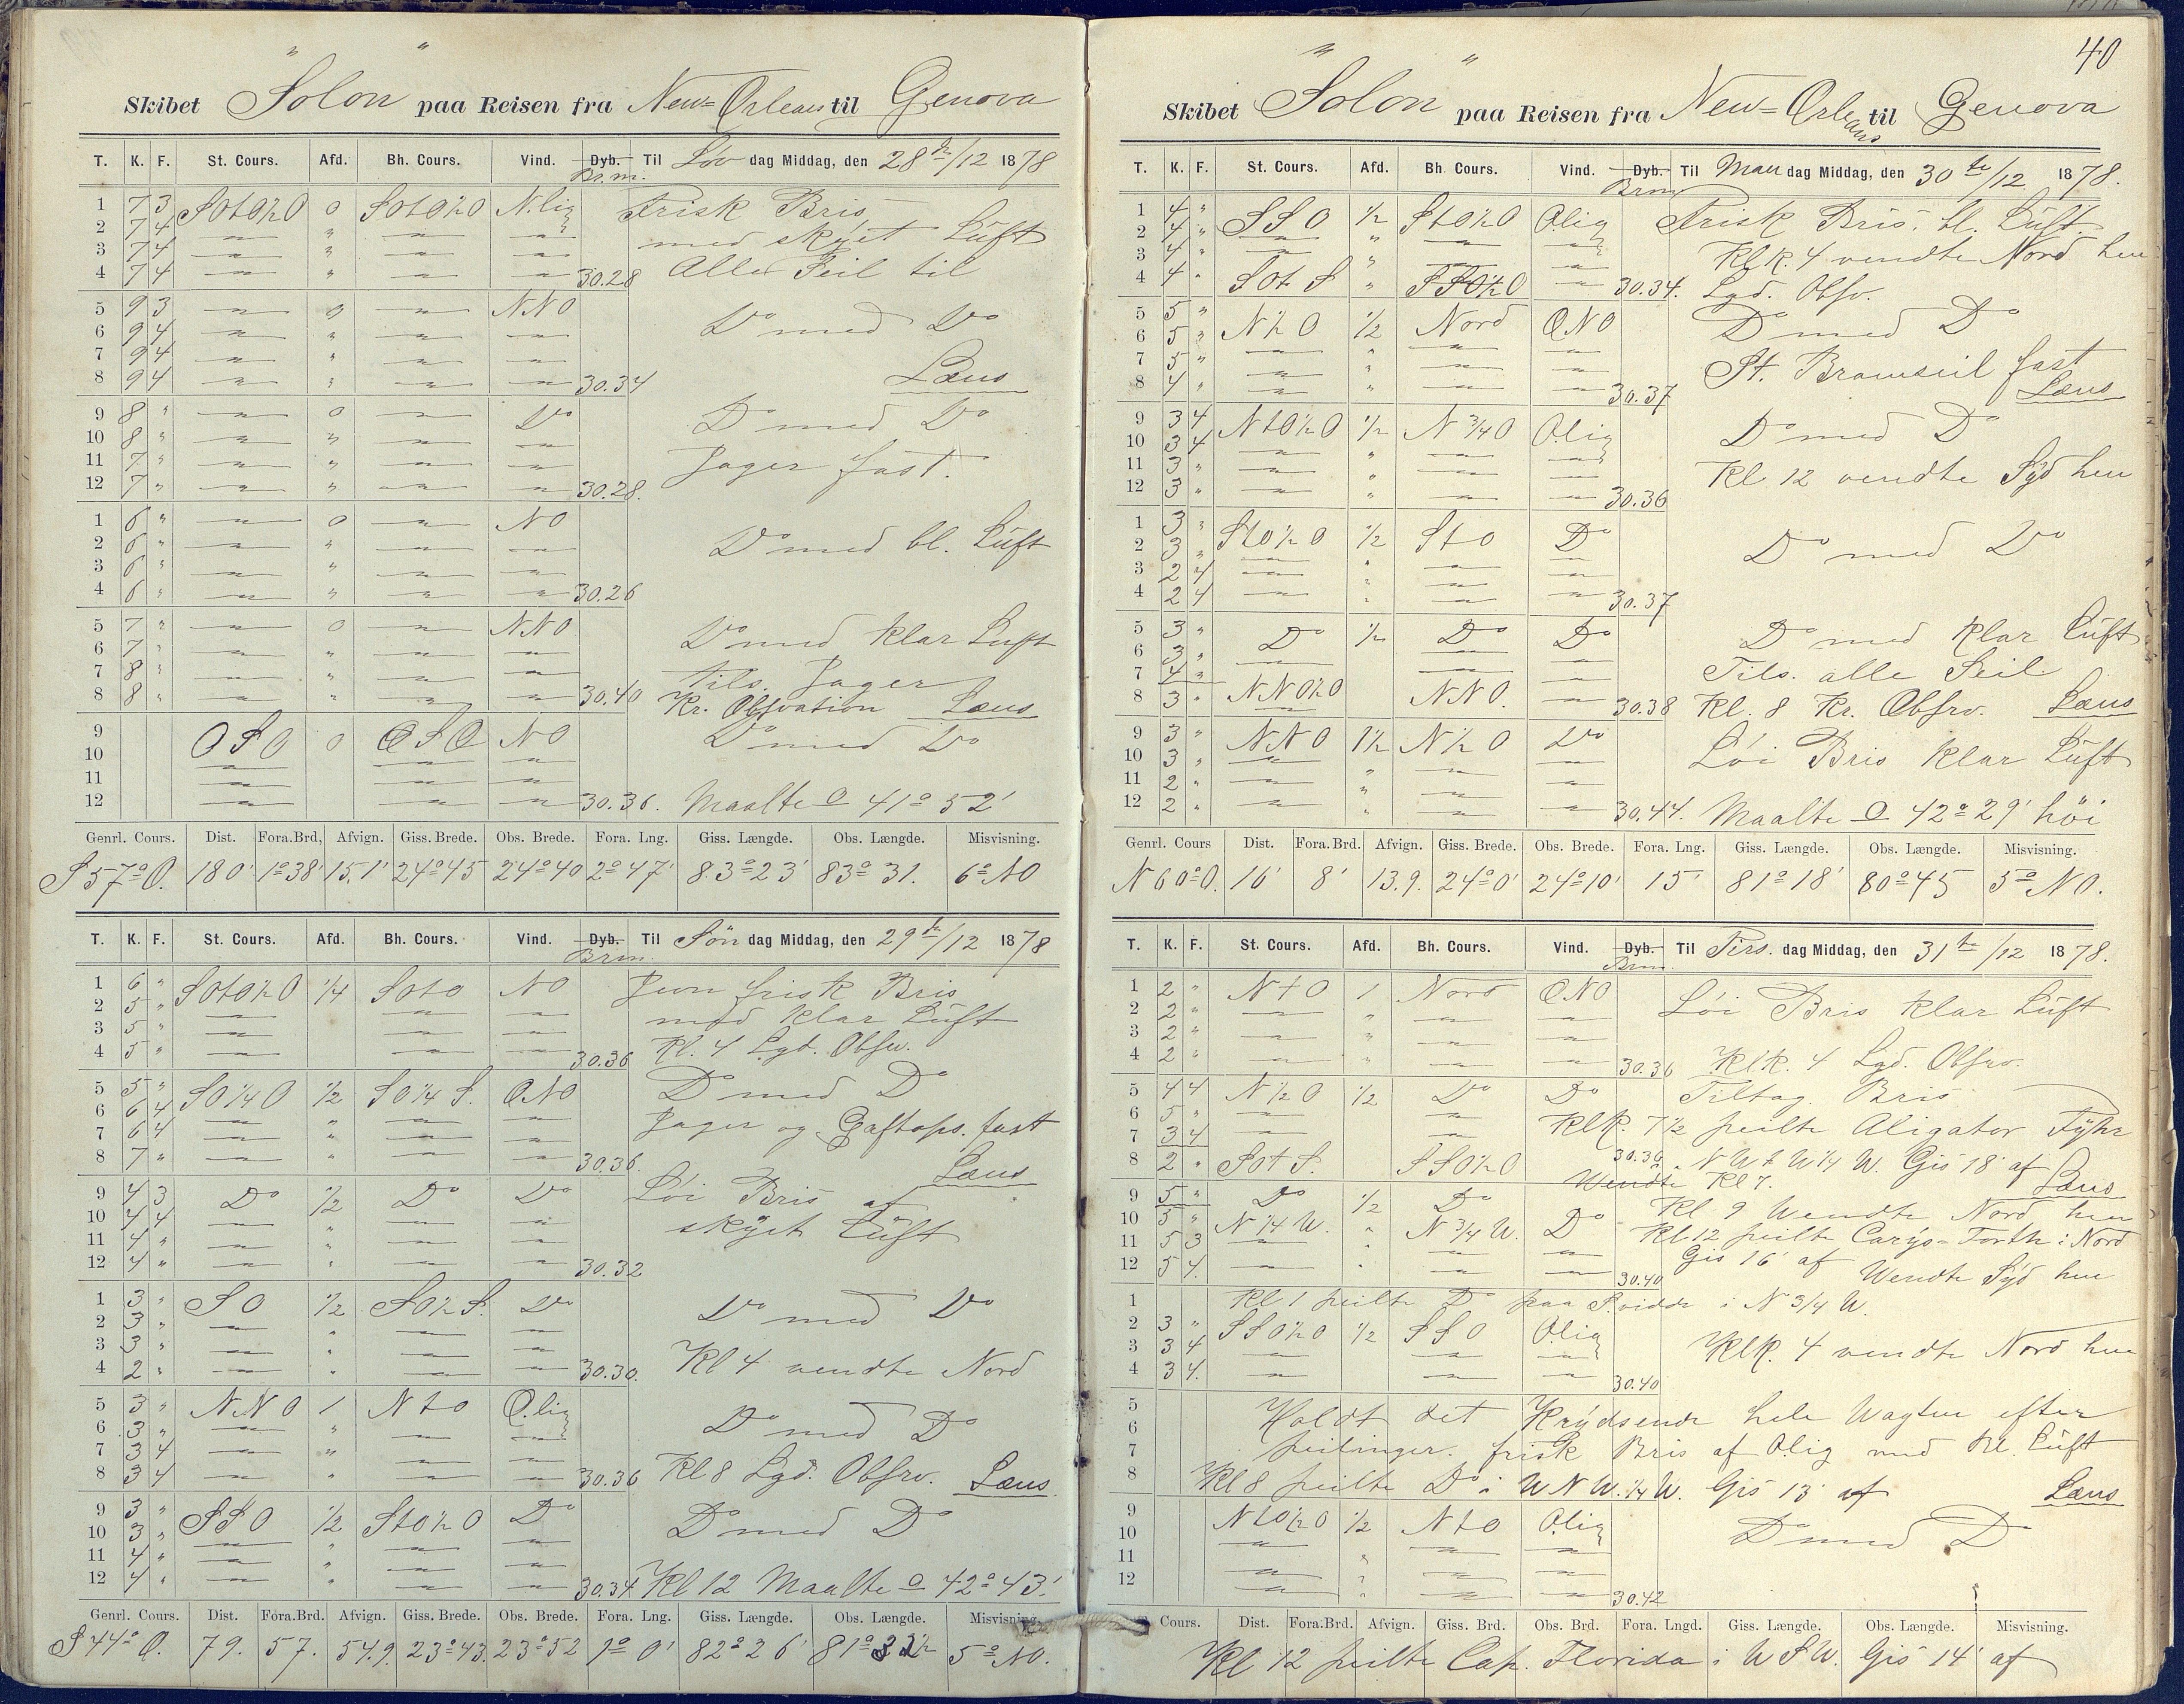 Skibet "Solon" paa Reisen fra New-Orleans til Genova
T. K. F. St. Cours. Afd. Bh. Cours. Vind. Dyb. Til Løv dag Middag, den 28de/12 1878
Br.m.
1 7 3 SOtO½O 0 SOtO½O N.lig Frisk Bris
2 7 4 — " — — med skyet Luft
3 7 4 — " — —
4 7 4 — " — — 30.28 Alle Seil til
5 9 3 — 0 — NNO
6 9 4 — " — — Do med Do
7 9 4 — " — —
8 9 4 — " — — 30.34 Læns
9 8 " — 0 — Do Do med Do
10 8 " — " — —
11 7 " — " — — Jager fast.
12 7 " — " — — 30.28.
1 6 " — 0 — NO
2 6 " — " — — Do med bl. Luft
3 6 " — " — —
4 6 " — " — — 30.26
5 7 " — 0 — NNO Do med klar Luft
6 7 " — " — —
7 8 " — " — — Tils. Jager
8 8 " — " — — 30.40 Kr. Obsvation Læns
9 OSO 0 OSO NO Do med Do
10 — — —
11 — — —
12 — — — 30.36. Maalte O 41° 52'
Genrl. Cours. Dist. Fora.Brd, Afvign. Giss. Brede. Obs. Brede. Fora. Lng. Giss. Længde. Obs. Længde. Misvisning.
S 57° O. 180' 1°38' 15.1' 24°45 24°40 2°47' 83°23' 83° 31. 6° NO
T. K. F. St. Cours. Afd. Bh. Cours. Vind. Dyb. Til Søn dag Middag, den 29de/12 1878
Brm.
1 6 " SOtO½O ¼ SOtO NO Jevn frisk Bris
2 5 " — — — med klar Luft
3 5 " — — —
4 5 " — — — 30.36 Kl. 4 Lgd. Obsv.
5 5 " SO¼O ½ SO¼S. ONO Do med Do
6 6 4 — " — —
7 6 4 — " — — Jager og Gaftops. fast
8 7 " — " — — 30.36. Læns
9 4 3 Do ½ Do Do Løi Bris af
10 4 4 — " — — skyet Luft
11 4 " — " — —
12 4 " — " — — 30.32
1 3 " SO ½ SO½S. Do Do med Do
2 3 " — " — —
3 3 " — " — —
4 2 " — " — — 30.30. Kl 4 vendte Nord
5 3 " NNO 1 NtO O.lig
6 3 " — " — — Do med Do
7 3 4 — " — —
8 3 4 — " — — 30.36 Kl 8 Lgd. Obsrv. Læns.
9 3 " SSO ½ StO½O Do Do med Do
10 3 " — " — —
11 4 " — " — —
12 4 " — " — — 30.34 Kl 12 Maalte O 42°43'.
Genrl. Cours. Dist. Fora.Brd. Afvign. Giss. Brede. Obs. Brede. Fora. Lng. Giss. Længde. Obs. Længde. Misvisning.
S 44° O. 79. 57. 54.9. 23°43. 23°52 1° 0' 82°26' 5° NO.
40
Skibet "Solon" paa Reisen fra New-Orleans til Genova
T. K. F. St. Cours. Afd. Bh. Cours. Vind. Dyb. Til Man dag Middag, den 30te/12 1878.
Brm
1 4 " SSO ½ StO½O Olig Frisk Bris. bl. Luft.
2 4 " — " — —
3 4 " — " — — Klk. 4 vendte Nord hen
4 4 " SOtS " SSO½O — 30.34. Lgd. Obsv.
5 5 " N½O ½ Nord ONO Do med Do
6 5 " — " — —
7 5 " — " — — St. Bramseil fast
8 4 " — " — — 30.37 Læns
9 3 4 NtO½O ½ N¾O O.lig Do med Do
10 3 4 — " — —
11 3 " — " — — Kl 12 vendte Syd hen
12 3 " — " — — 30.36
1 3 " StO½O ½ StO Do
2 3 " — " — — Do med Do
3 2 4 — " — —
4 2 4 — " — — 30.37
5 3 " Do ½ Do Do Do med klar Luft
6 3 " — — —
7 4 " — — — Tils. alle Seil
8 3 " NNO½O NNO. — 30.38 Kl. 8 Kr. Obsrv. Læns
9 3 " NNO 1½ N½O Do Løi Bris klar Luft
10 3 " — " — —
11 2 " — " — —
12 2 " — " — — 30.44. Maalte O 42°29' høi
Genrl. Cours Dist. Fora.Brd. Afvign. Giss. Brede. Obs. Brede. Fora. Lng. Giss. Længde. Obs. Længde. Misvisning.
N 60° O. 16' 8' 13.9. 24°0' 24°10' 15' 81°18' 80°45 5° NO.
T. K. F. St. Cours. Afd. Bh. Cours. Vind. Dyb. Til Tirs. dag Middag, den 31te/12 1878.
Brm.
1 2 " NtO 1 Nord ONO Løi Bris klar Luft
2 2 " — " — —
3 2 " — " — —
4 2 " — " — — 30.36 Klk. 4 Lgd. Obsrv.
5 4 4 N½O ½ Do Do Tiltag. Bris
6 5 " — — Klk. 7½ peilte Aligator Fyhr
7 3 4 — —
8 2 " SOtS. SSO½O 30.36 i NWtW¼W. Gis 18' af Læns
Wendte Kl 7.
9 5 " Do ½ Do Kl 9 Wendte Nord hen
10 5 " N¼W. " N¾W. Do Kl 12 peilte Carys-Forth i Nord
11 5 3 — " — — Gis 16' af
12 5 4 — " — — 30.40 Wendte Syd hen
1 Kl 1 peilte Do paa S.vidde i N¾W.
2 3 " SSO½O ½ SSO O.lig
3 3 4 — — — Klk. 4 vendte Nord hen
4 3 4. — — — 30.40
5 Holdt det Krydsende hele Wagten efter
6
7 peilinger. frisk Bris af Olig med bl. Luft
8 Kl 8 peilte Do i WNW.¼W. Gis 13' af Læns
9 NtO½O ½ NtO O.lig
10 — — — Do med Do
11 — " — —
12 — " — — 30.42
Cours. Dist. Fora.Brd. Afvign. Giss. Brd. Obs. Brd. Fora. Lngd. Giss. Længde. Obs. Længde. Misvisning.
Kl 12 peilte Cap. Florida i WSW. Gis 14' af